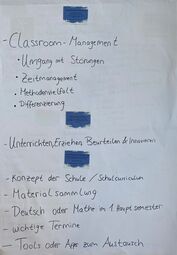 - Classroom-Management
• Umgang mit Störungen
• Zeitmanagement
• Methodenvielfalt
• Differenzierung
- Unterrichten, Erziehen, Beurteilen & Innovieren
- Konzept der Schule / Schulcurriculum
- Materialsammlung
- Deutsch oder Mathe im 1. Hauptsemester
- wichtige Termine
- Tools oder Apps zum Austausch